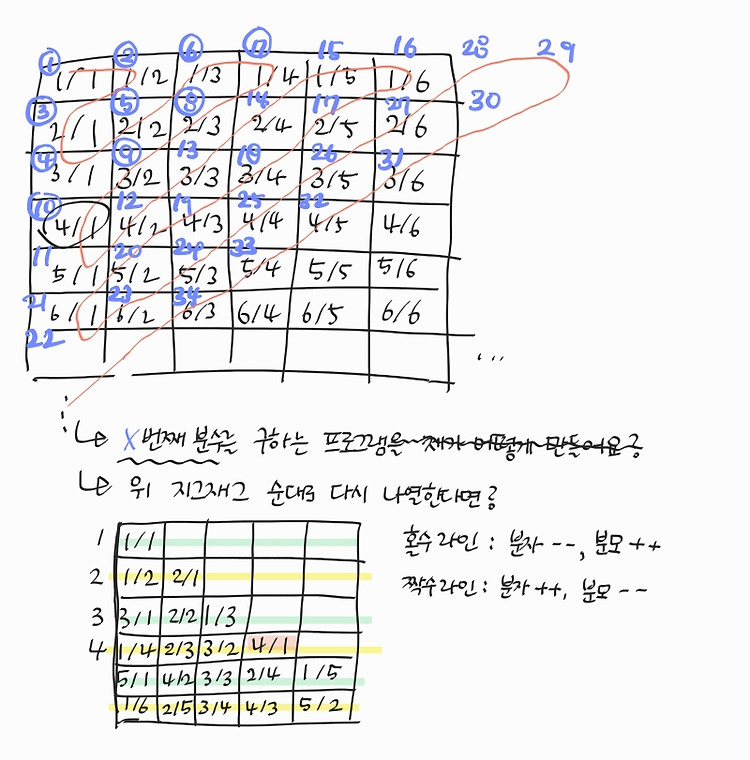 ① ② ⑥ ⑦ 15 16 28 29
1/1 1/2 1/3 1/4 1/5 1/6
③ ⑤ ⑧ 14 17 27 30
2/1 2/2 2/3 2/4 2/5 2/6
④ ⑨ 13 18 26 31
3/1 3/2 3/3 3/4 3/5 3/6
⑩ 12 19 25 32
4/1 4/2 4/3 4/4 4/5 4/6
11 20 24 33
5/1 5/2 5/3 5/4 5/5 5/6
21 23 34
6/1 6/2 6/3 6/4 6/5 6/6
22
...
X번째 분수를 구하는 프로그램을 제가 어떻게 만들어요?
위 지그재그 순대로 다시 나열한다면?
1 1/1
2 1/2 2/1
3 3/1 2/2 1/3
4 1/4 2/3 3/2 4/1
5/1 4/2 3/3 2/4 1/5
1/6 2/5 3/4 4/3 5/2
홀수라인 : 분자 --, 분모 ++
짝수라인 : 분자 ++, 분모 --